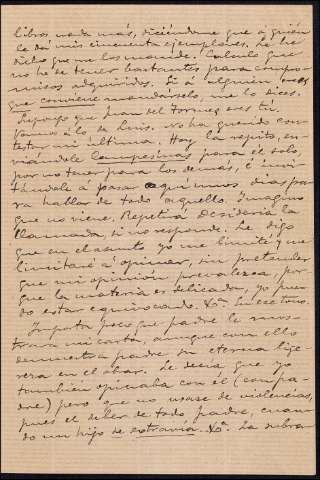 libros, nada más, diciéndome que a quién
le da mis cincuenta ejemplares. Le he
dicho que me los mande. Calculo que
no he de tener bastantes para compro-
misos adquiridos. Si a alguien crees
que conviene mandárselo, me lo dices.
Supongo que Juan del Torneg eres tú.
Vamos a lo de Luis. No ha querido con-
testar mi última. Hoy la repito, en-
viándole Campesinas para él solo,
por no tener para los demás, e invi-
tándole a pasar aquí unos días pa-
ra hablar de todo aquello. Imagino
que no viene. Repetirá Desideria la
llamada si no responde. Le digo
que en el asunto yo me limité y me
limitaré a opinar, sin pretender
que mi opinión prevalezca, por-
que la materia es delicada, yo pue-
do estar equivocado. &ª.
Importa poco que padre le mos-
trara mi carta, aunque con ello
demuestra padre su eterna lige-
reza en el obrar. Le decía que yo
también opinaba con él (compa-
dre) pero que no usase de violencias,
pues el deber de todo padre, cuan-
do un hijo se extravía. &ª. La